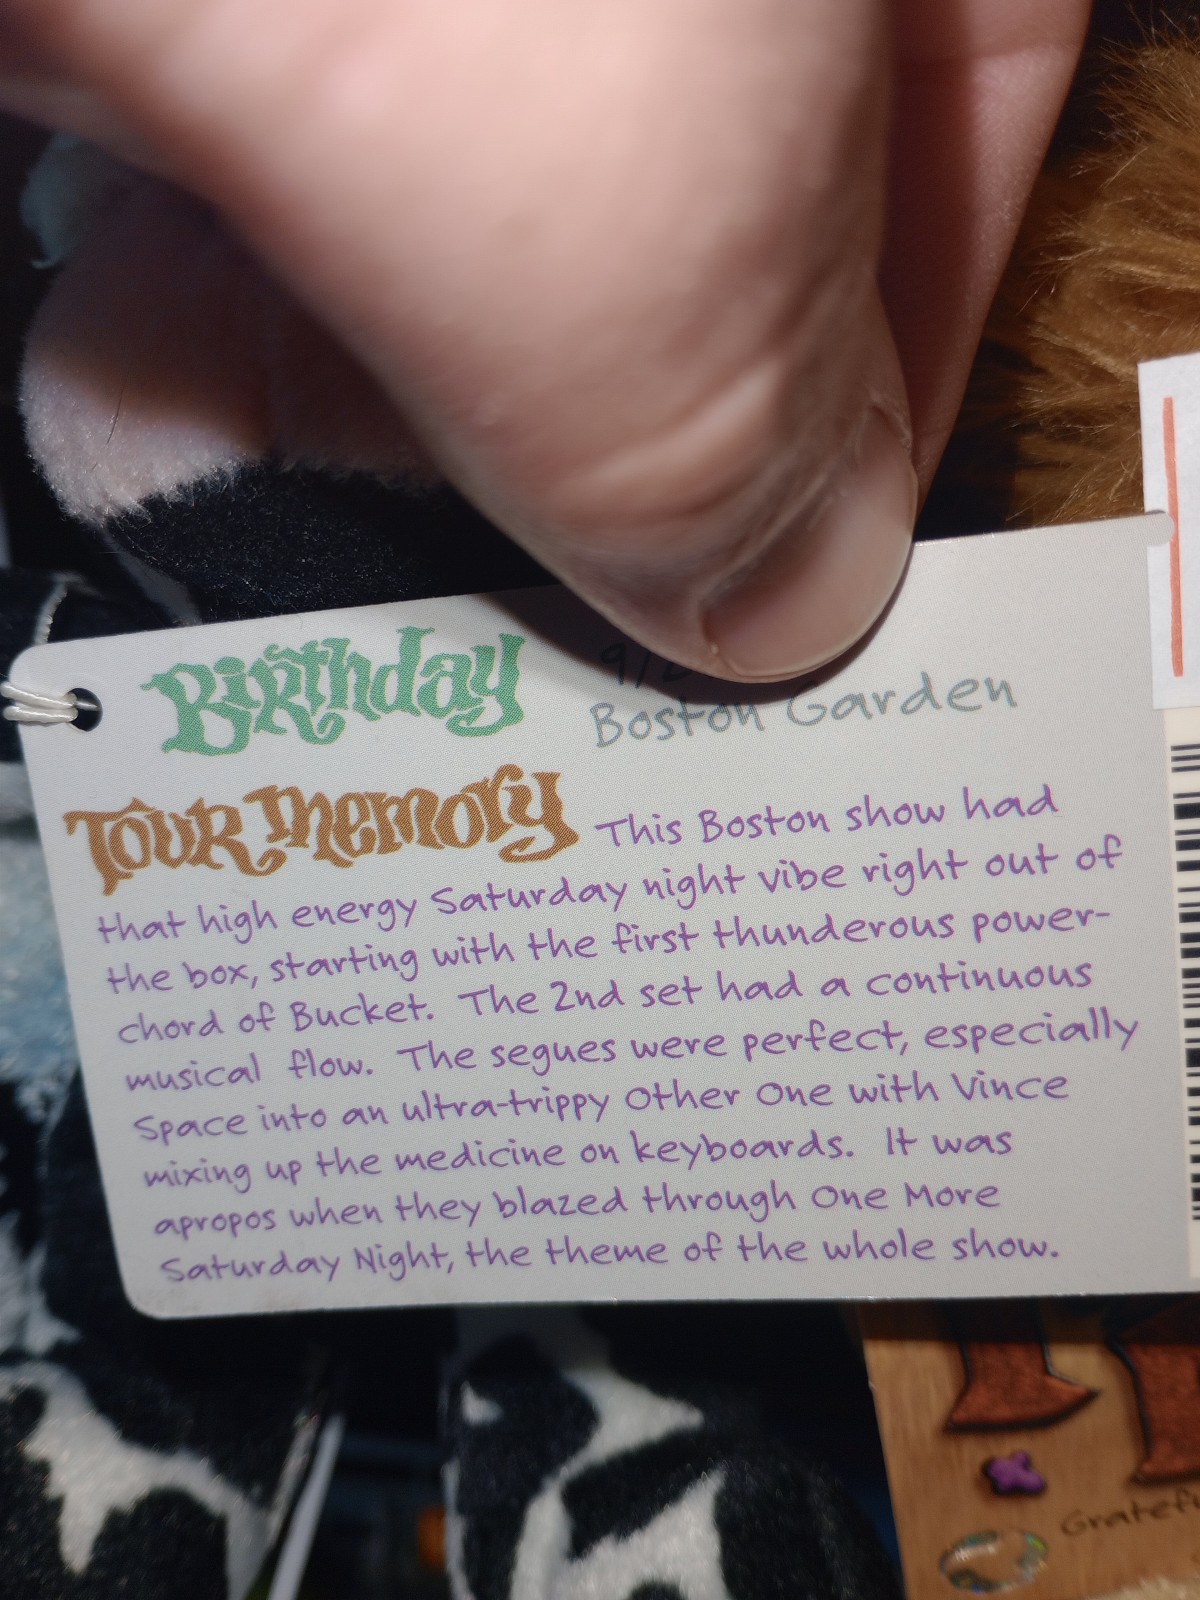 Birthday
9/2
Boston Garden
Tour Memory This Boston show had
that high energy Saturday night vibe right out of
the box, starting with the first thunderous power-
chord of Bucket. The 2nd set had a continuous
musical flow. The segues were perfect, especially
Space into an ultra-trippy Other One with Vince
mixing up the medicine on keyboards. It was
apropos when they blazed through One More
Saturday Night, the theme of the whole show.